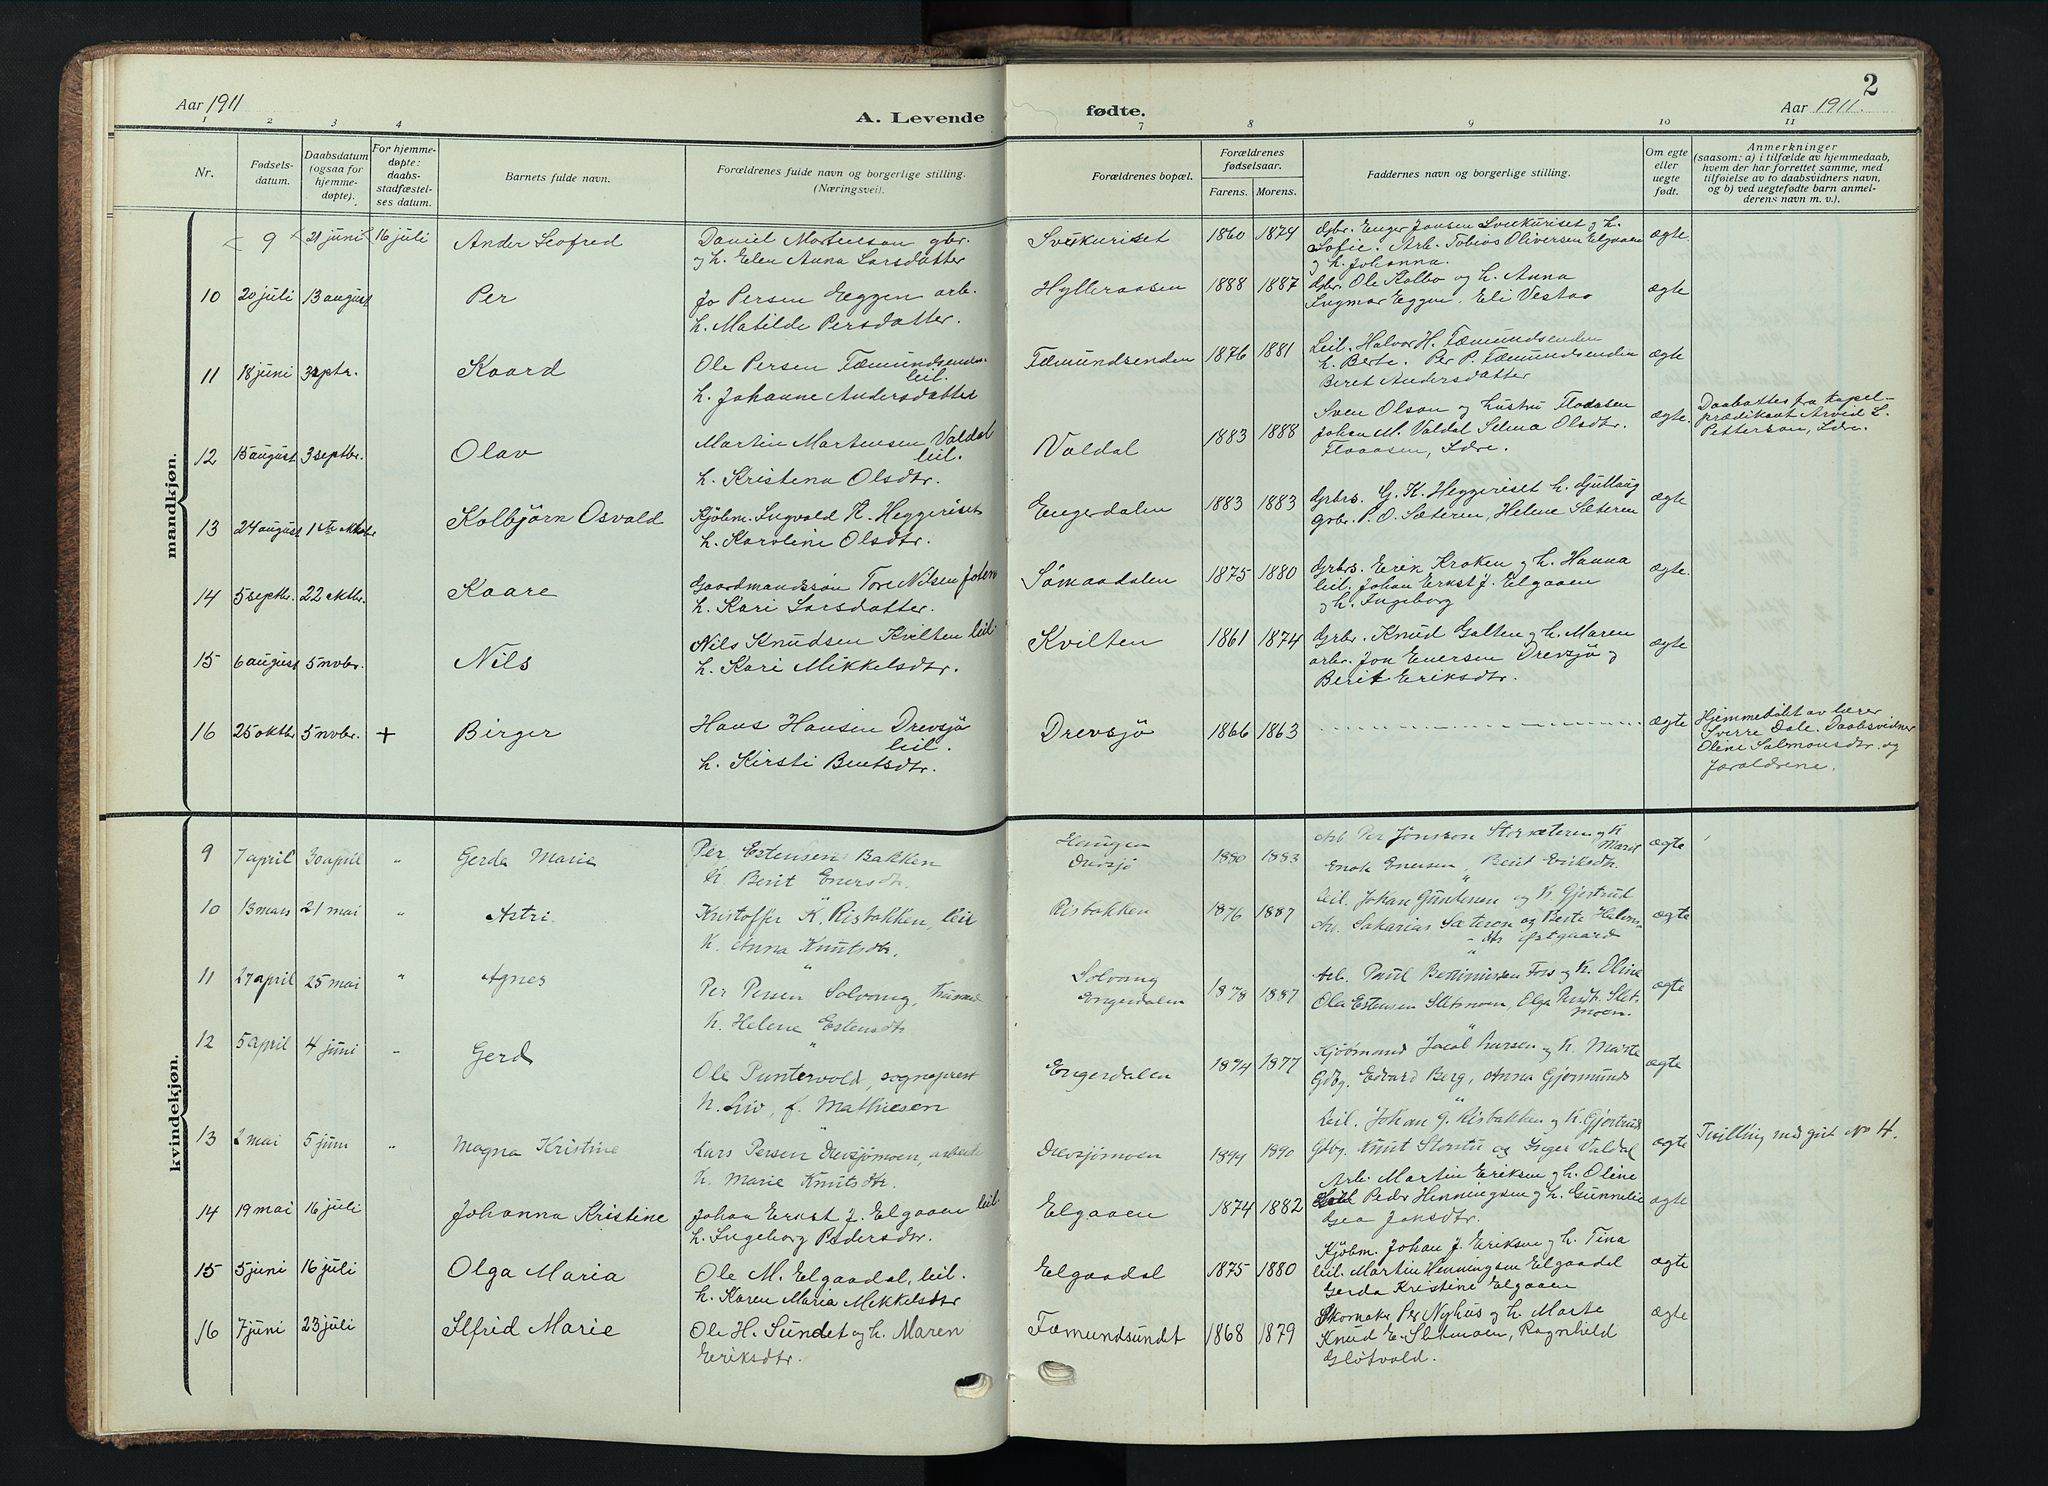 2
Aar 1911
A. Levende fødte.
Aar 1911.
1 2 3 4 7 8 9 10 11
Nr.
Fødselsdatum.
Daabsdatum (ogsaa for hjemmedøpte).
For hjemmedøpte: daabsstadfæstelses datum.
Barnets fulde navn.
Forældrenes fulde navn og borgerlige stilling. (Næringsvei).
Forældrenes bopæl.
Forældrenes fødselsaar.
Farens. Morens.
Faddernes navn og borgerlige stilling.
Om egte eller uegte født.
Anmerkninger
(saasom: a) i tilfælde av hjemmedaab, hvem der har forrettet samme, med tilføielse av to daabsvidners navn, og b) ved uegtefødte barn anmelderens navn m. v.).
mandkjøn.
9 21 juni 16 juli Ander Leofred Daniel Mortensen gbr. Svukuriset 1860 1874 Gbr. Enger Jonsen Svukuriset og h. ægte
og h. Elen Anna Larsdatter Sofie. Arb. Tobias Oliversen Elgaaen
og h. Johanna.
10 20 juli 13 august Per Jo Persen Eggen arb. Hylleraasen 1888 1887 Gbr. Ole Kolbo og h. Anna ægte
h. Matilde Persdatter. Ingmar Eggen. Eli Vestao
11 18 juni 3 septr. Kaard Ole Persen Fæmundsenden leil. Fæmundsenden 1876 1881 Leil. Halvor H. Fæmundsenden ægte
h. Johanne Andersdatter h. Berte. Per P. Fæmundsenden
Beret Andersdatter
12 15 august 3 septbr. Olav Martin Mortensen Valdal leil. Valdal 1883 1888 Sven Olson og hustru Flodåsen ægte. Daabattes fra kapelprædikant Arvid L. Petterson, Idre.
h. Kristena Olsdtr. Johan M. Valdal Selma Olsdtr.
Floaasen, Idre.
13 24 august 1ste oktbr Kolbjörn Osvald Kjöbm. Ingvald K. Heggeriset Engerdalen 1883 1883 Grbrs. G. K. Heggeriset h. Gjullaug ægte
h. Karoline Olsdtr. Grbr. P. O. Sæteren, Helene Sæteren
14 5 septbr. 22 oktbr. Kaare Gaardmandssön Tore Nilsen Sömaadalen 1875 1880 Grbrs. Erik Kroken og h. Hanna ægte.
h. Kari Larsdatter. leil. Johan Ernst J. Elgaaen
og h. Ingeborg
15 6 august 5 nvbr. Nils Nils Knudsen Kvilten leil. Kvilten 1861 1874 Grbr. Knud Galten og h. Maren ægte
h. Kari Mikkelsdtr. arbr. Jon Enersen Drevsjö og
Berit Eriksdtr.
16 25 oktbr 5 nvbr. + Birger Hans Hansen Drevsjö leil. Drevsjö 1866 1863 ægte Hjemmedöbt av lærer
h. Kirsti Bentsdtr. Sverre Dale. Daabsvidner
Oline Salmonsdtr. og
foraldrene.
kvindekjøn.
9 7 april 30 april " Gerda Marie Per Estensen Bakken Haugen 1880 1883 Arb Per Jönsson Storsæteren og K. Marit ægte
K. Berit Enersdtr. Drevsjø Enok Enersen, Berit Eriksdtr.
10 13 mars 21 mai " Astri Kristoffer K. Risbakken, leil Risbakken 1876 1887 Leil. Johan Gundersen og K. Gjertrud ægte
K. Anna Knutsdtr. Arb. Sakarias Sæteren og Berte
Østgaard
11 27 april 25 mai " Agnes Per Persen Solvang, Solvang 1878 1887 Arb. Paul Berthinussen Foss og K. Oline ægte
K. Helene Estensdtr Engerdalen Ola Estensen Sletmoen, Olga Sletmoen.
12 5 april 4 juni " Gerd Ole Puntervold, sogneprest Engerdalen 1874 1877 Kjøbmand Jacob Larsen og K. Marte ægte
K. Liv, f. Mathiesen Gdbg. Edvard Berg, Anna Gjermunds
13 2 mai 5 juni " Magna Kristine Lars Persen Drevsjømoen, arbeider Drevsjømoen 1890 Leil. Johan G. Risbakken og K. Gjertrud ægte Tvilling med gut No 4.
K. Marie Knutsdtr. Gdbg. Knut Storstu og Inger Valdal
14 19 mai 16 juli Johanna Kristine Johan Ernst J. Elgaaen leil. Elgaaen 1874 1882 Arb. Martin Eriksen og h. Oline ægte
h. Ingeborg Pedersdtr. Peder Henningsen og h. Gunnelie
Gea Jonsdtr.
15 5 juni 16 juli Olga Maria Ole M. Elgaadal, leil. Elgaadal 1875 1880 Kjöbm. Johan J. Eriksen og h. Tina ægte
h. Karen Maria Mikkelsdtr leil. Martin Henningsen Elgaadal
Gerda Kristine Elgaaen
16 7 juni 23 juli Ilfrid Marie Ole H. Sundet og h. Maren Fæmundsundt 1868 1879 Skomaker Per Nyhus og h. Marte ægte
Eriksdtr. Knud E. Sletmoen, Ragnhild
Glötvold.